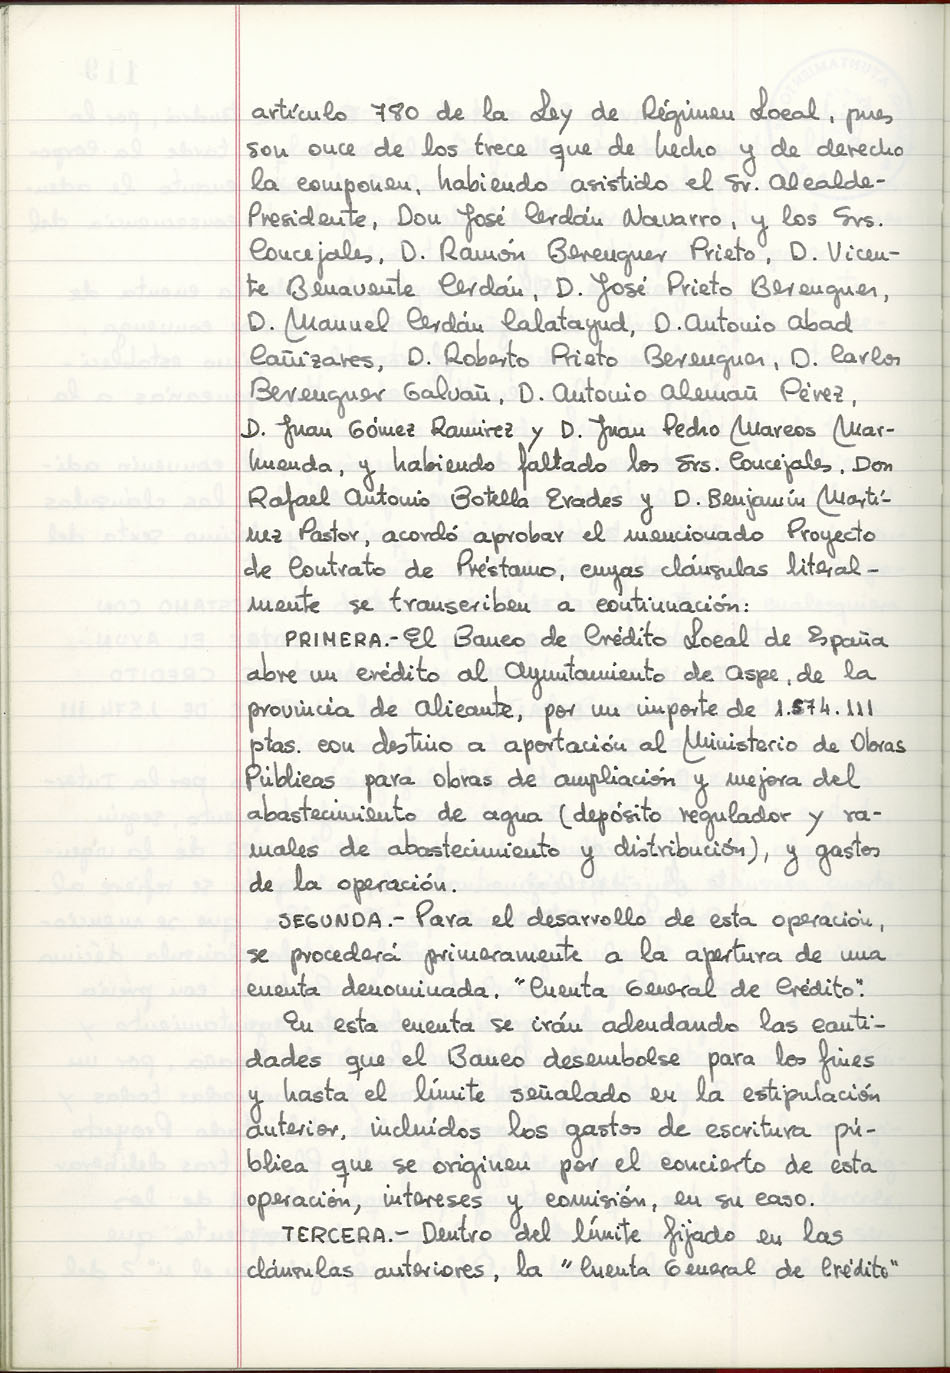 artículo 780 de la Ley de Régimen Local, pues
son once de los trece que de hecho y de derecho
la componen, habiendo asistido el Sr. Alcalde-
Presidente, Don José Cerdán Navarro, y los Srs.
Concejales, D. Ramón Berenguer Prieto, D. Vicen-
te Benavente Cerdán, D. José Prieto Berenguer,
D. Manuel Cerdán Calatayud, D. Antonio Abad
Cañizares, D. Roberto Prieto Berenguer, D. Carlos
Berenguer Galvañ, D. Antonio Alemañ Pérez,
D. Juan Gómez Ramirez y D. Juan Pedro Marcos Mar-
huenda, y habiendo faltado los Srs. Concejales, Don
Rafael Antonio Botella Erades y D. Benjamín Martí-
nez Pastor, acordó aprobar el mencionado Proyecto
de Contrato de Préstamo, cuyas cláusulas literal-
mente se transcriben a continuación:
PRIMERA.- El Banco de Crédito Local de España
abre un crédito al Ayuntamiento de Aspe, de la
provincia de Alicante, por un importe de 1.574.111
ptas. con destino a aportación al Ministerio de Obras
Públicas para obras de ampliación y mejora del
abastecimiento de agua (depósito regulador y ra-
males de abastecimiento y distribución), y gastos
de la operación.
SEGUNDA.- Para el desarrollo de esta operación,
se procederá primeramente a la apertura de una
cuenta denominada, "Cuenta General de Crédito".
En esta cuenta se irán adeudando las canti-
dades que el Banco desembolse para los fines
y hasta el límite señalado en la estipulación
anterior, incluídos los gastos de escritura pú-
blica que se originen por el concierto de esta
operación, intereses y comisión, en su caso.
TERCERA.- Dentro del límite fijado en las
cláusulas anteriores, la "Cuenta General de Crédito"